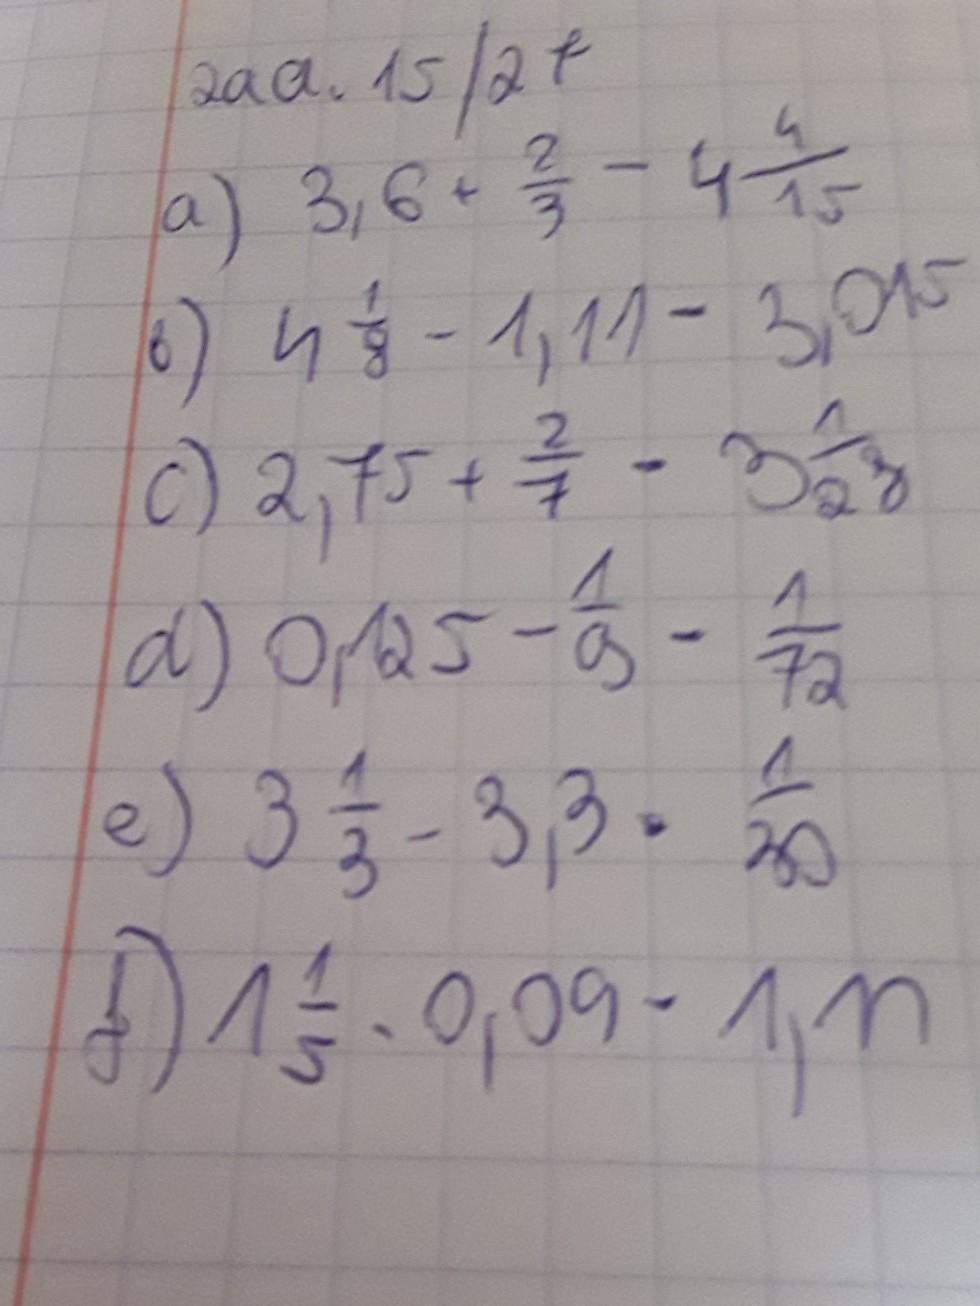 zad. 15/27
a) 3,6 + 2/3 - 4 4/15
b) 4 1/8 - 1,11 - 3,015
c) 2,75 + 2/7 - 3 1/28
d) 0,125 - 1/9 - 1/72
e) 3 1/3 - 3,3 - 1/30
f) 1 1/5 - 0,09 - 1,11